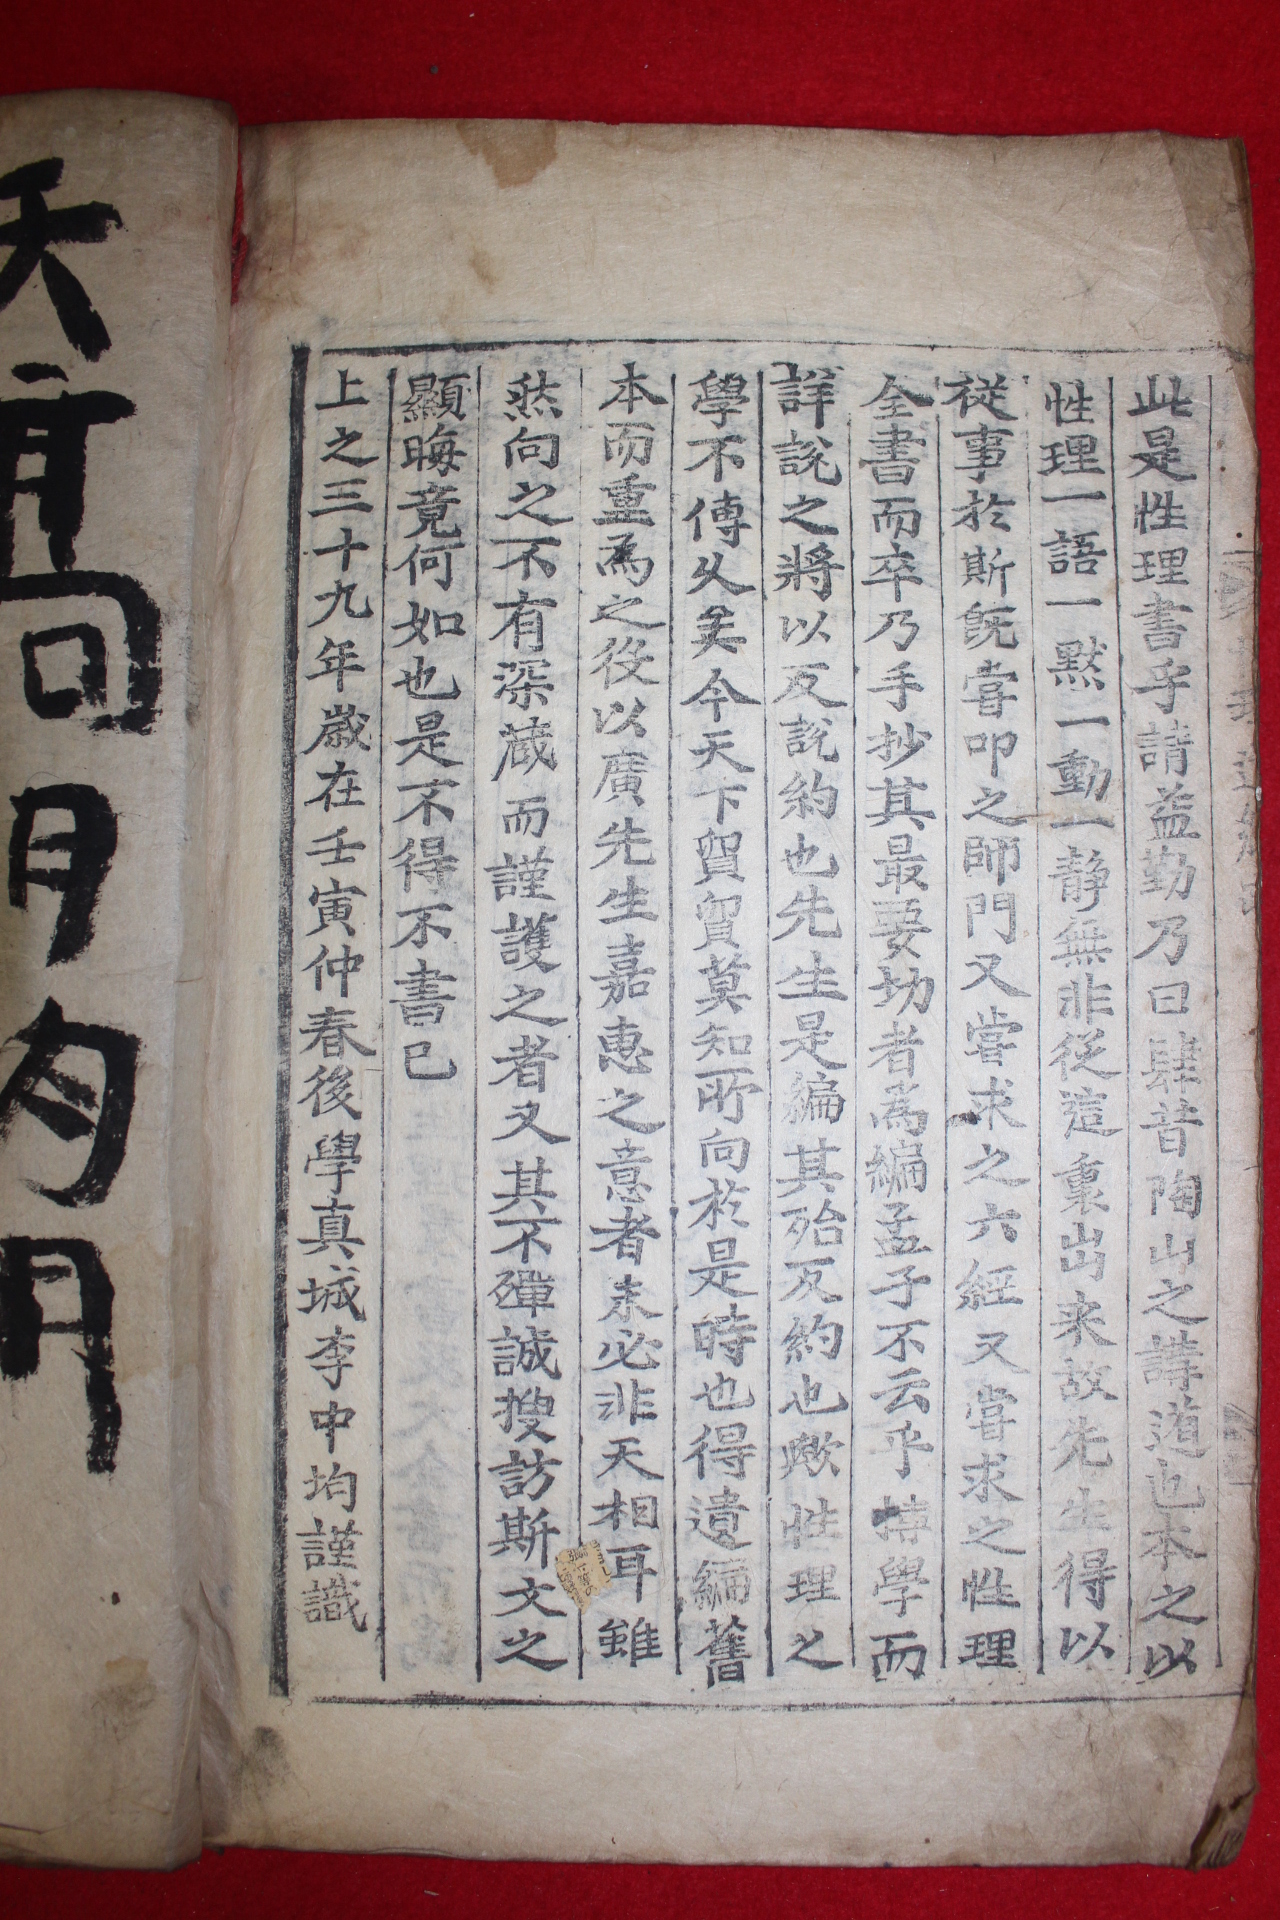 此是性理書乎請益勤乃曰肆昔陶山之講道也本之以
性理一語一默一動一靜無非從這裏出來故先生得以
從事於斯旣嘗叩之師門又嘗求之六經又嘗求之性理
全書而卒乃手抄其最要切者為編孟子不云乎博學而
詳說之將以反說約也先生是編其殆反約也歟性理之
學不傳久矣今天下貿貿莫知所向於是時也得遺編舊
本而重為之役以廣先生嘉惠之意者未必非天相耳雖
然向之不有深蔵而謹護之者又其不殫誠搜訪斯文之
顯晦竟何如也是不得不書已
上之三十九年歲在壬寅仲春後學真城李中均謹識